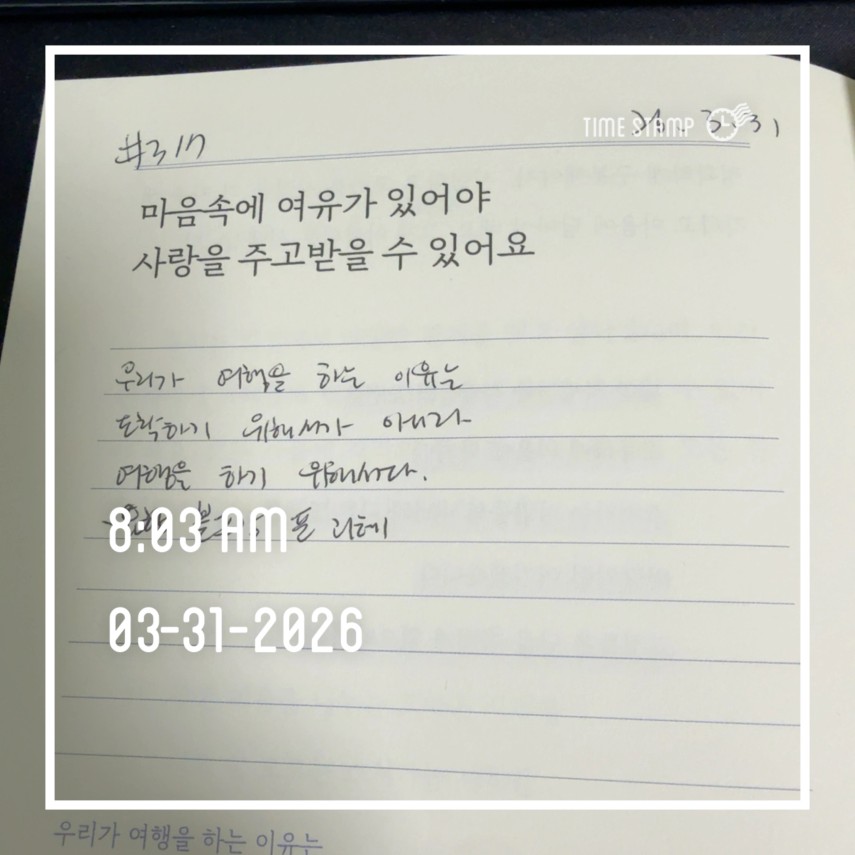 #317
26. 3. 31
TIME STAMP
마음속에 여유가 있어야
사랑을 주고받을 수 있어요
우리가 여행을 하는 이유는
도착하기 위해서가 아니라
여행을 하기 위해서다.
폰 괴테
8:03 AM
03-31-2026
우리가 여행을 하는 이유는